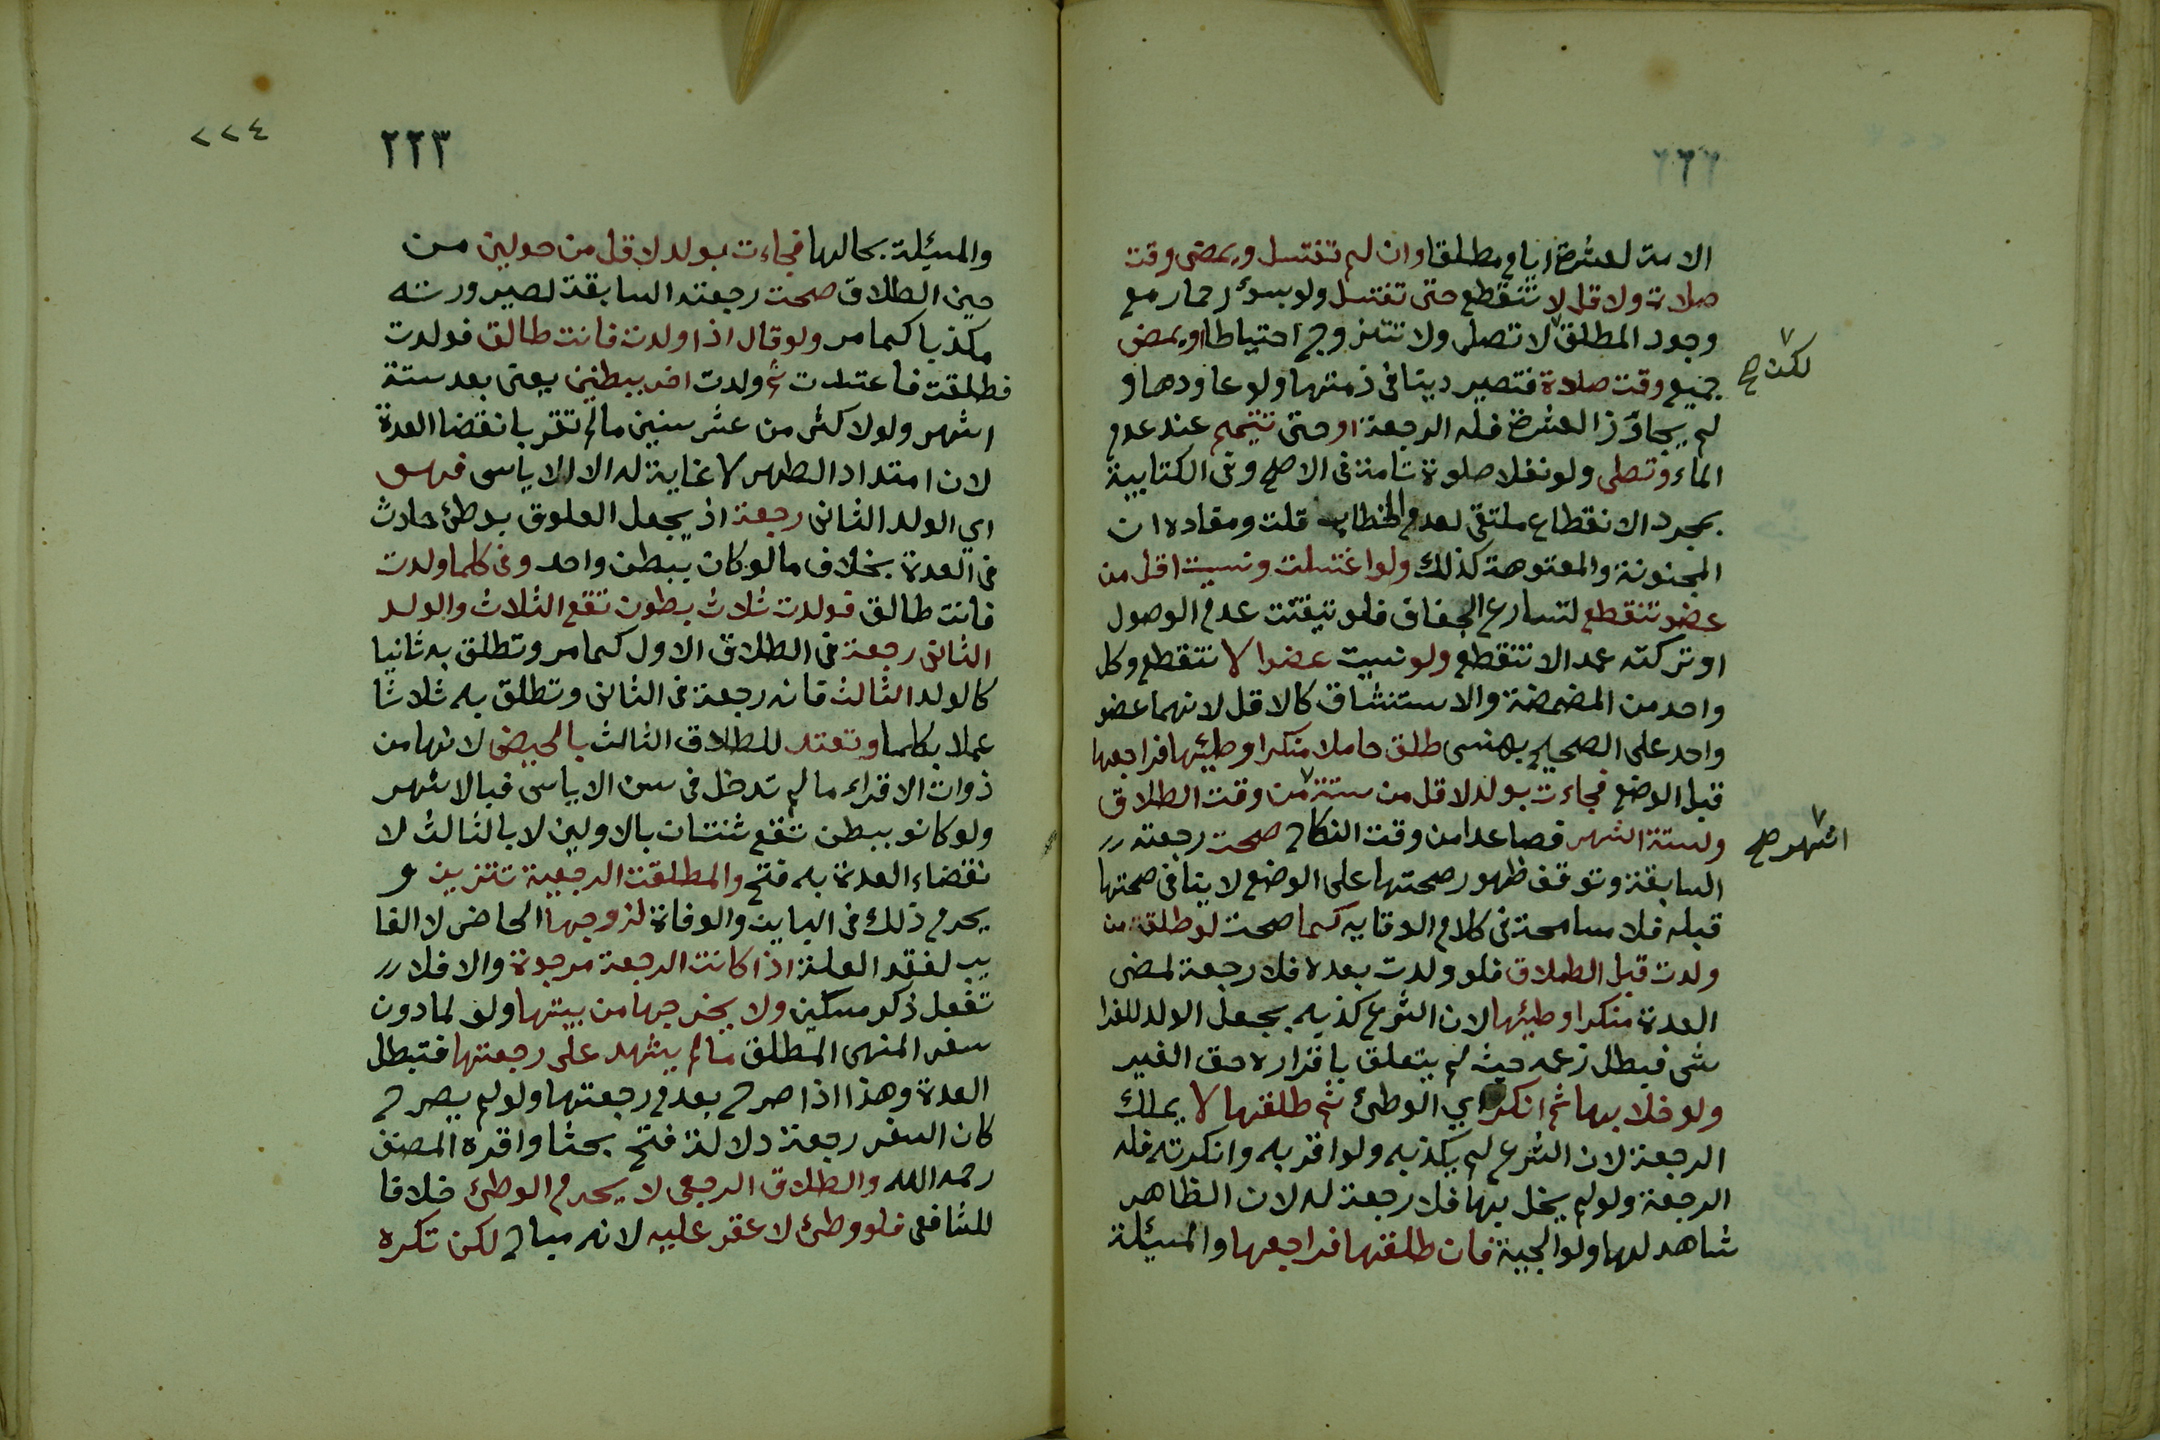 ٢٢٢
الامة لعشرة ايام مطلقا وان لم تغتسل ويمضى وقت
صلاة ولا قل لا تنقطع حتى تغتسل ولو بسؤر حمار مع
وجود المطلق لا تصلى ولا تتزوج احتياطا او يمضى
لكن صح
جميع وقت صلاة فتصير دينا فى ذمتها ولو عاودها و
لم يجاوز العشرة فله الرجعة او حتى تتيمم عند عدم
الماء وتصلى ولو نفلا صلوة تامة فى الاصح وفى الكتابية
بمجرد الانقطاع ملتقى لعدم الخطاب قلت ومفاده ان
المجنونة والمعتوهة كذلك ولو اغتسلت ونسيت اقل من
عضو تنقطع لتسارع الجفاف فلو تيقنت عدم الوصول
او تركته عمدا لا تنقطع ولو نسيت عضوا لا تنقطع وكل
واحد من المضمضة والاستنشاق كالاقل لانهما عضو
واحد على الصحيح بهنسى طلق حاملا منكرا وطيئها فراجعها
قبل الوضع فجاءت بولد لاقل من ستة من وقت الطلاق
ولستة اشهر فصاعدا من وقت النكاح صحت رجعته
اشهر صح
السابقة وتوقف ظهور صحتها على الوضع لا ينافى صحتها
قبله فلا مسامحة فى كلام الوقايه كما صحت لو طلق من
ولدت قبل الطلاق فلو ولدت بعده فلا رجعة لمضى
العدة منكرا وطيئها لان الشرع كذبه بجعل الولد للفرا
ش فبطل زعمه حيث لم يتعلق باقراره حق الغير
ولو خلا بها ثم انكره اي الوطئ ثم طلقها لا يملك
الرجعة لان الشرع لم يكذبه ولو اقر به وانكرته فله
الرجعة ولو لم يخل بها فلا رجعة له لان الظاهر
شاهد لها ولوالجية فان طلقها فراجعها والمسئلة
٢٢٤
٢٢٣
والمسئلة بحالها فجاءت بولد لاقل من حولين من
حين الطلاق صحت رجعته السابقة لصيرورته
مكذبا كما مر ولو قال اذا ولدت فانت طالق فولدت
فطلقت فاعتدت ثم ولدت اخر ببطنين يعنى بعد ستة
اشهر ولو لاكثر من عشر سنين مالم تقر بانقضا العدة
لان امتداد الطهر لا غاية له الا الاياس فهو
اي الولد الثانى رجعة اذ يجعل العلوق بوطئ حادث
فى العدة بخلاف مالو كان ببطن واحد وفى كلما ولدت
فانت طالق فولدت ثلاث بطون تقع الثلاث والولد
الثانى رجعة فى الطلاق الاول كما مر وتطلق به ثانيا
كالولد الثالث فانه رجعة فى الثانى وتطلق به ثلاثا
عملا بكلما وتعتد للطلاق الثالث بالحيض لانها من
ذوات الاقراء مالم تدخل فى سن الاياس فبالاشهر
ولو كانو ببطن تقع ثنتان بالاولين لا بالثالث لا
نقضاء العدة به فتح والمطلقة الرجعية تتزين و
يحرم ذلك فى الباين والوفاة لزوجها الحاضر لا الغا
يب لفقد العلة اذا كانت الرجعة مرجوة والا فلا
تفعل ذكره مسكين ولا يخرجها من بيتها ولو لمادون
سفر المنهى المطلق مالم يشهد على رجعتها فتبطل
العدة وهذا اذا صرح بعدم رجعتها ولو لم يصرح
كان السفر رجعة دلالة فتح بحثا واقره المصنف
رحمه الله والطلاق الرجعى لا يحرم الوطئ خلافا
للشافعى فلو وطئ لا عقر عليه لانه مباح لكن تكره